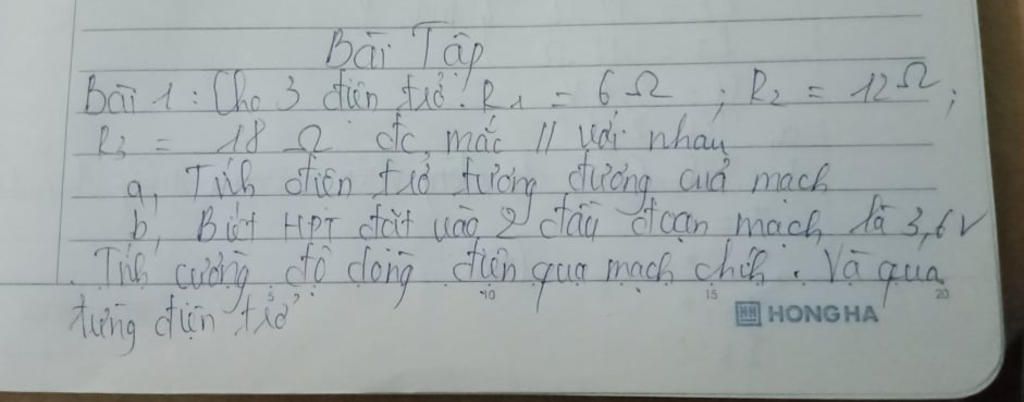 Bài Tập
Bài 1: Cho 3 điện trở: R1 = 6 Ω ; R2 = 12 Ω ;
R3 = 18 Ω đc mắc // với nhau
a, Tính điện trở tương đương của mạch
b, Biết HĐT đặt vào 2 đầu đoạn mạch là 3,6V
. Tính cường độ dòng điện qua mạch chính. Và qua
từng điện trở
5 10 15 20
HH HONG HA